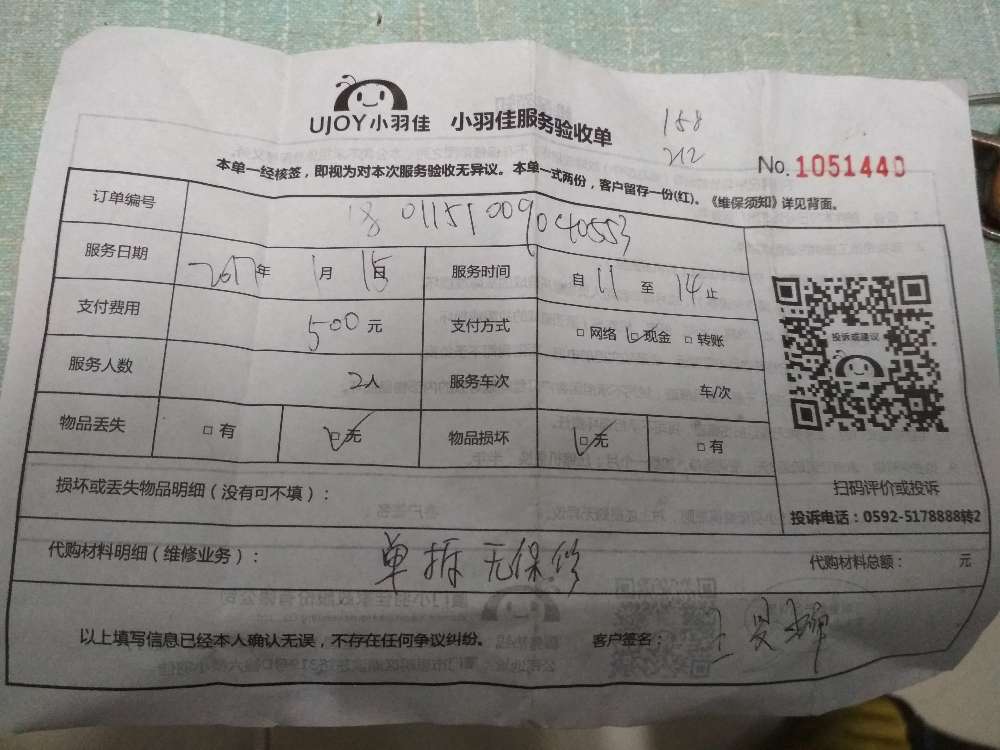 UJOY小羽佳 小羽佳服务验收单
158
212
No. 1051440
本单一经核签，即视为对本次服务验收无异议。本单一式两份，客户留存一份(红)。《维保须知》详见背面。
订单编号 18 01151009040553
服务日期 2017年 1月 15日 服务时间 自 11 至 14 止
支付费用 500元 支付方式 □ 网络 □ 现金 □ 转账
服务人数 2人 服务车次 车/次
物品丢失 □ 有 □ 无 物品损坏 □ 无 □ 有
投诉或建议
扫码评价或投诉
投诉电话：0592-5178888转2
损坏或丢失物品明细（没有可不填）：
代购材料明细（维修业务）： 单拆 无保修 代购材料总额： 元
以上填写信息已经本人确认无误，不存在任何争议纠纷。 客户签名：